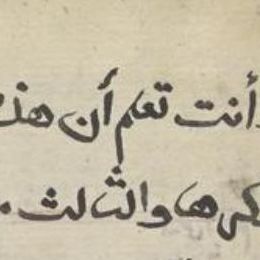 وأنت تعلم أن هذ
كرها والثالث